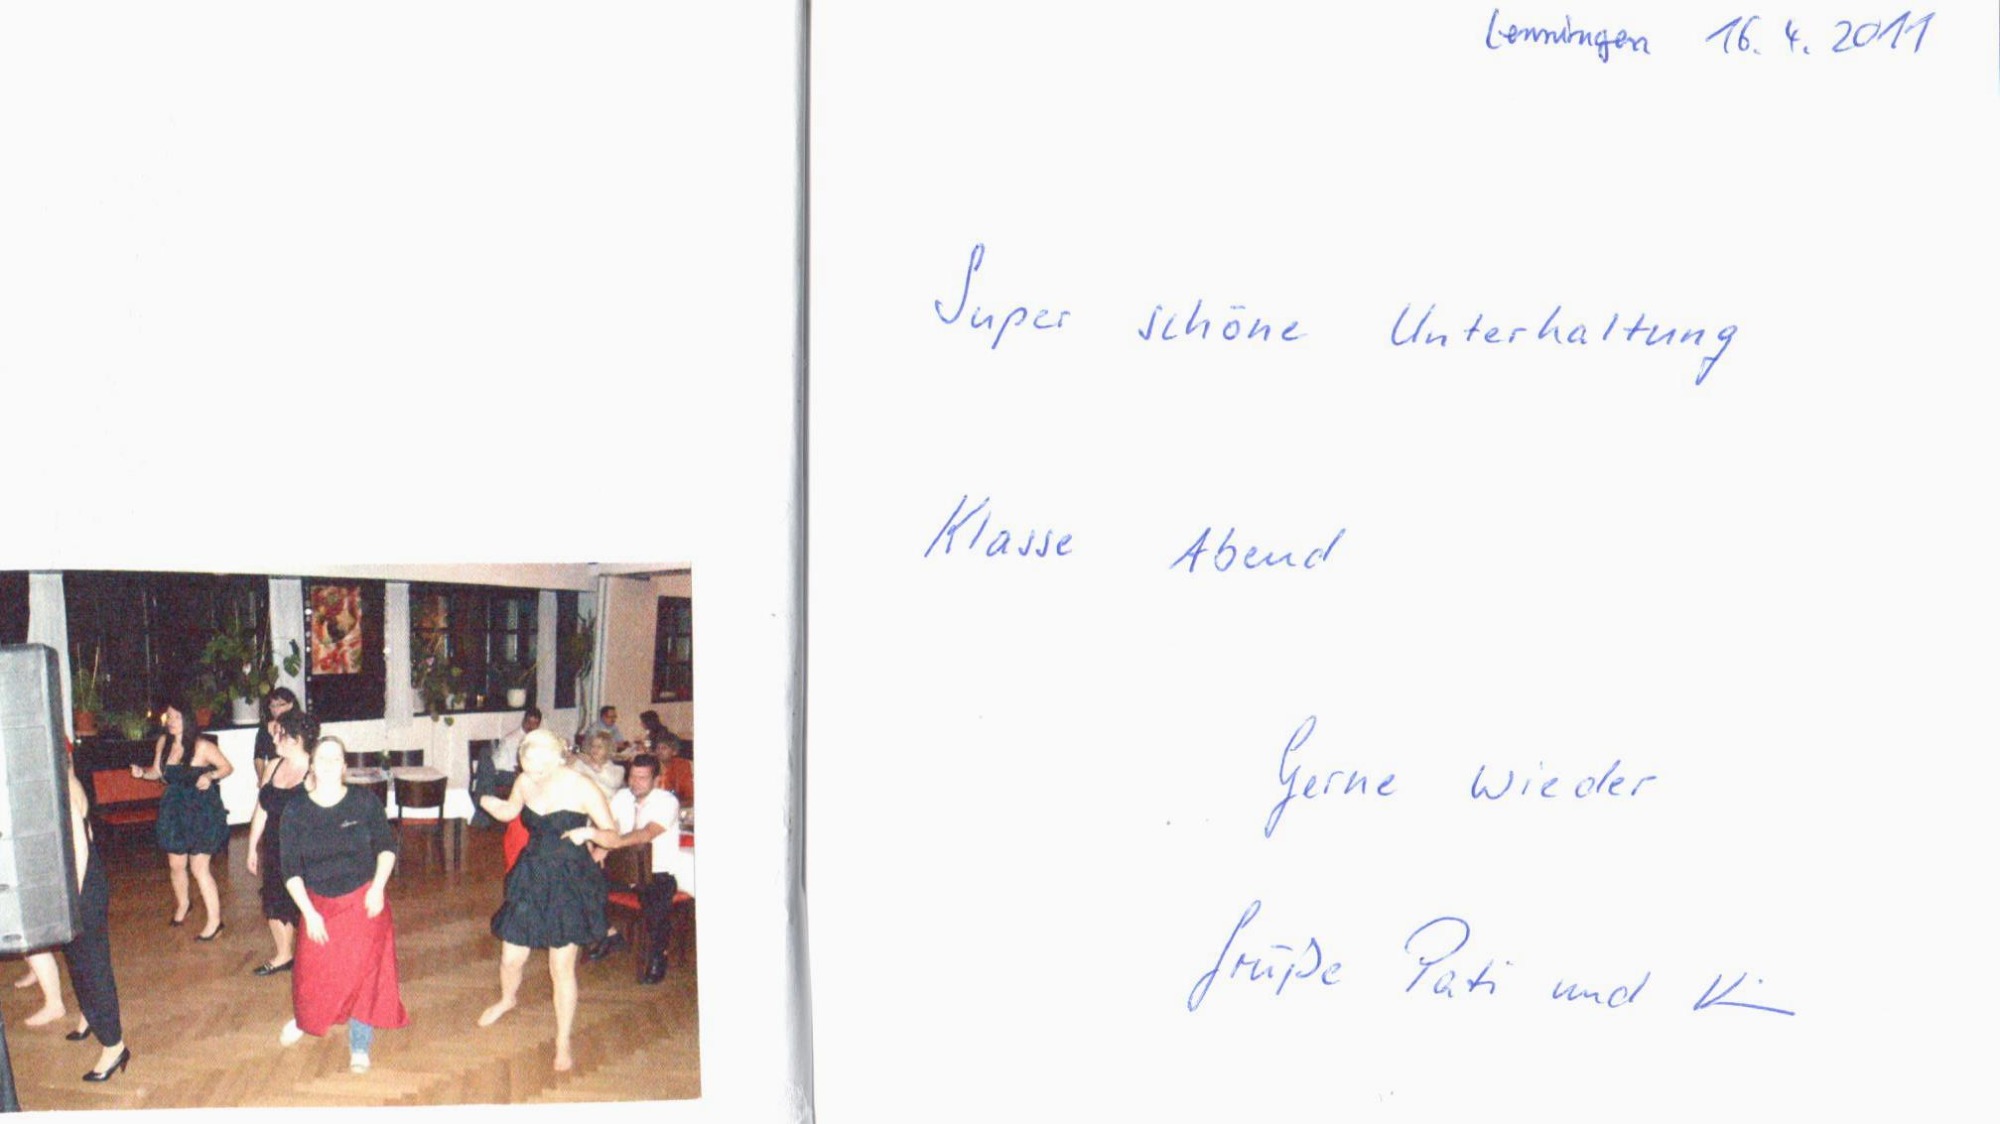 Lenningen 16. 4. 2011
Super schöne Unterhaltung
Klasse Abend
Gerne wieder
Grüße Pati und